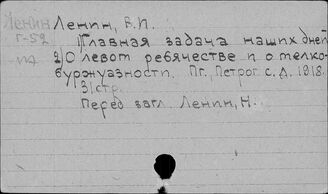 Ленин Ленин, В.И.
Г-52 1) Главная задача наших дней
2) О левом ребячестве и о мелко-
буржуазности. Пг., Петрог с. Д. 1918.
31 стр.
Перед загл. Ленин, Н.